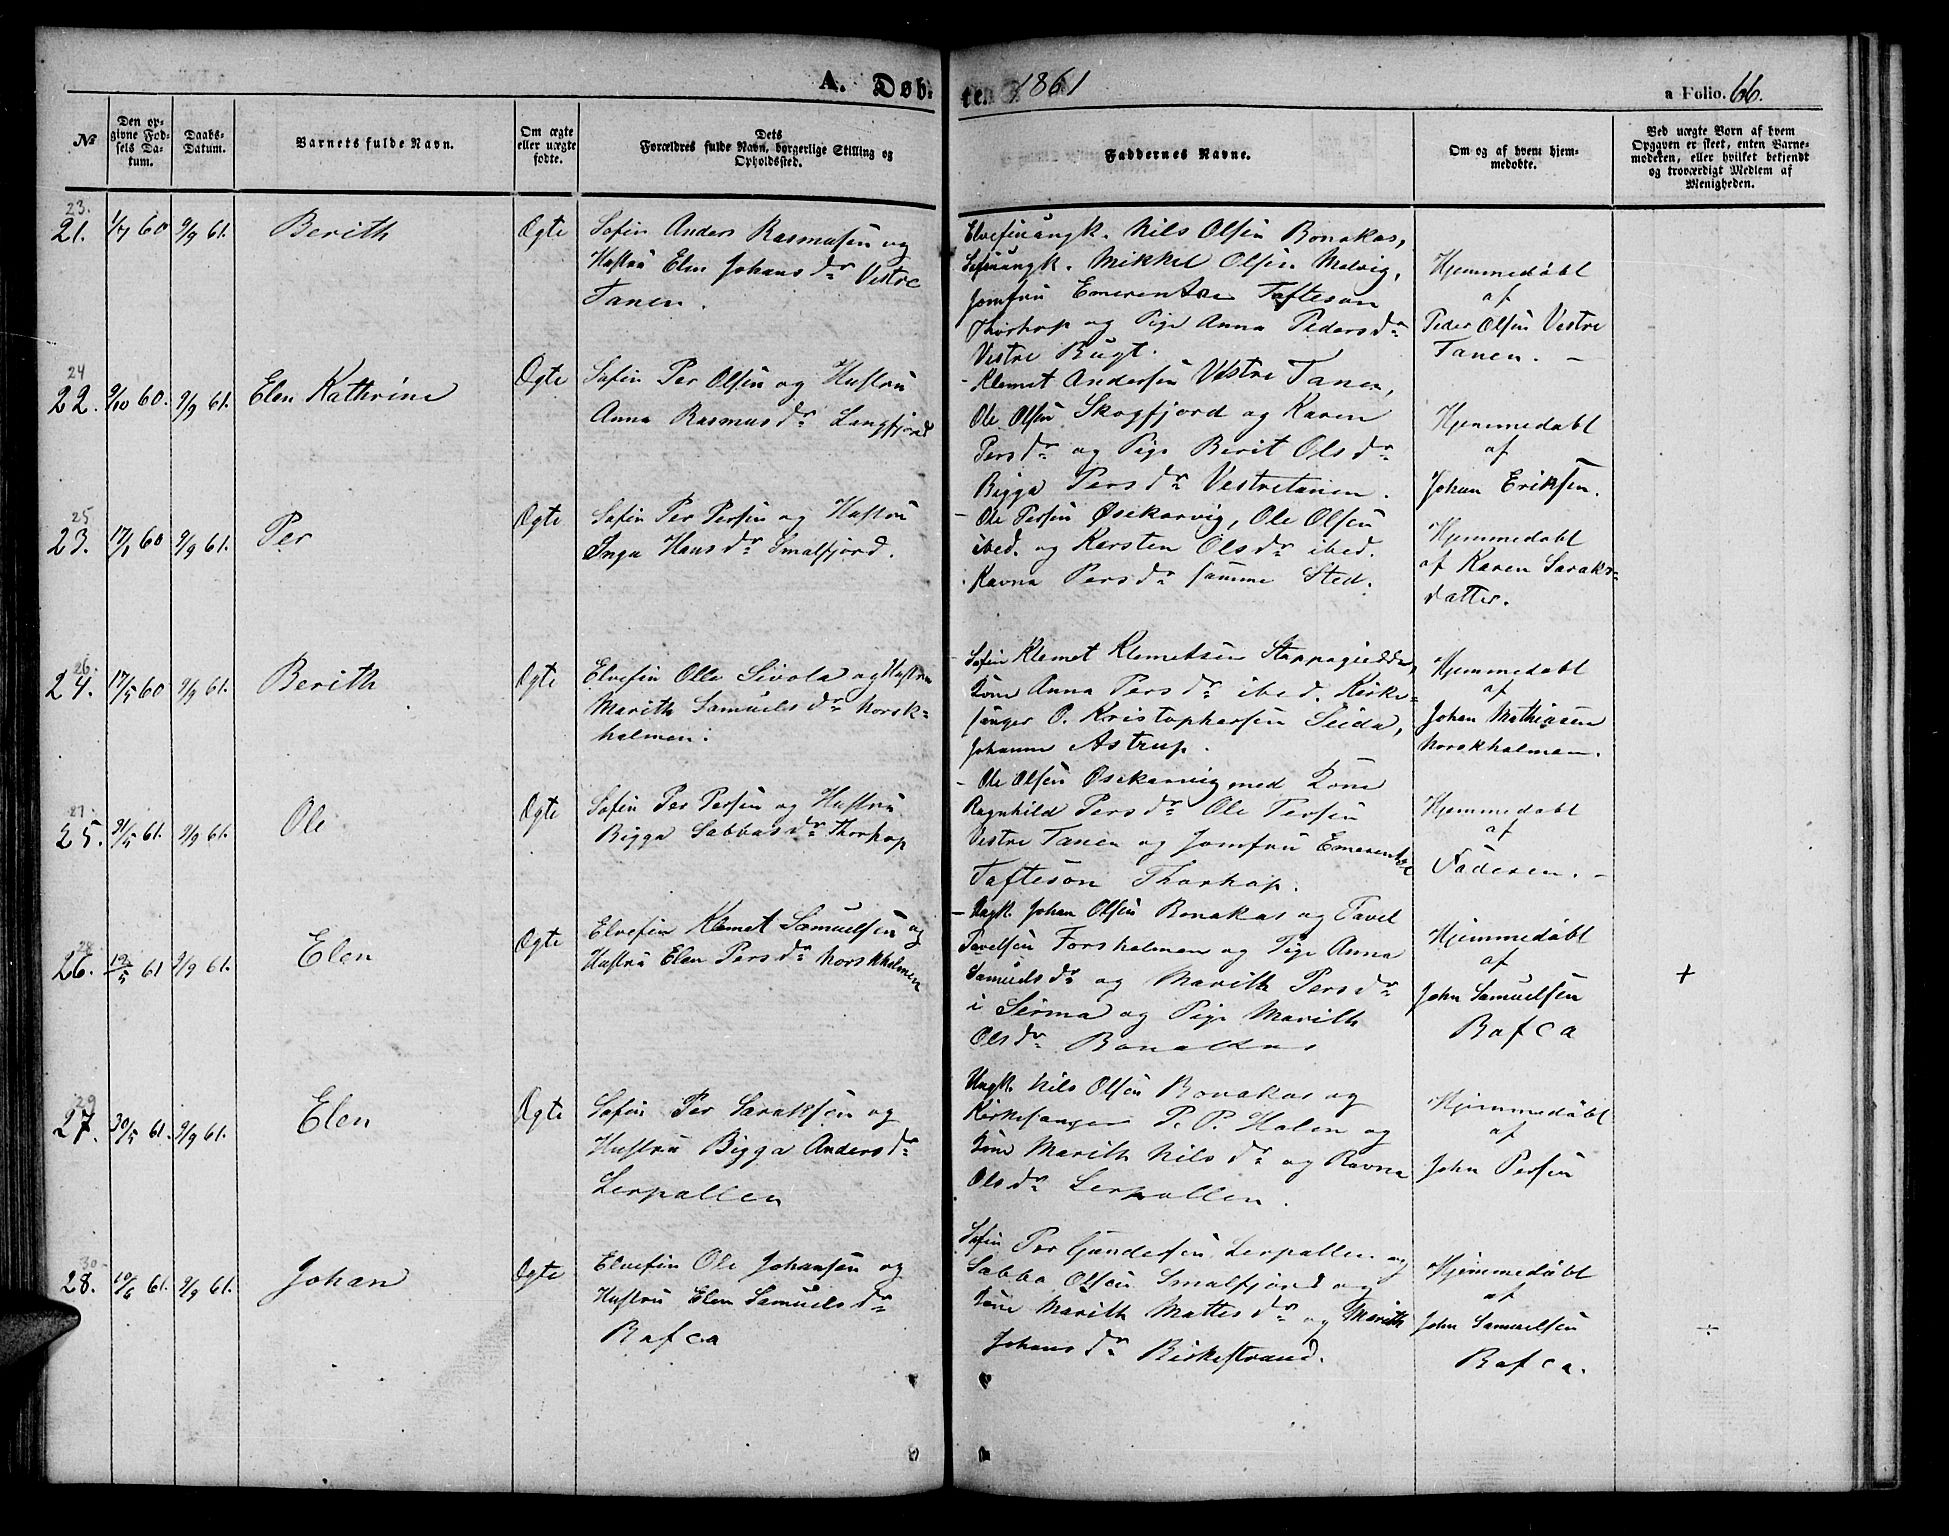 A. Døb-
ten 1861
a Folio. 66.
№
Den op-
givne Fød-
sels Da-
tum.
Daabs-
Datum.
Barnets fulde Navn.
Om ægte
eller uægte
fødte.
Dets
Forældres fulde Navn, borgerlige Stilling og
Opholdssted.
Faddernes Navne.
Om og af hvem hjem-
medøbte.
Ved uægte Børn af hvem
Opgaven er skeet, enten Barne-
moderen, eller hvilket bekjendt
og troværdigt Medlem af
Menigheden.
23.
21. 1/7 60 9/9 61. Berith Ægte
Søfin Anders Rasmusen og
Hustru Elen Johans dr Vestre
Tanen.
Elvefinungk. Nils Olsen Bonakas,
Søfinungk. Mikkel Olsen Molvig,
Jomfru Emerentze Tafteson
Thorhop og Pige Anna Peders dr
Vestre Bugt.
Hjemmedøbt
af
Peder Olsen Vestre
Tanen. -
24
22. 9/10 60. 9/9 61. Elen Kathrine Ægte
Søfin Per Olsen og Hustru
Anna Rasmus dr Langfjord
- Klemet Andersen Vestre Tanen,
Ole Olsen Skogfjord og Karen
Pers dr og Pige Berit Ols dr
Bigga Pers dr Vestretanen.
Hjemmedøbt
af
Johan Eriksen.
25
23. 17/1 60 9/9 61. Per Ægte
Søfin Per Persen og Hustru
Inga Hans dr Smalfjord.
- Ole Persen Øsekarvig, Ole Olsen
ibed. og Kersten Ols dr ibed.
Ravna Pers dr samme Sted.
Hjemmedøbt
af Karen Saraks-
datter.
26.
24. 17/5 60 9/9 61. Berith Ægte
Elvefin Olle Sivola og Hustru
Marith Samuels dr Norsk-
holmen.
Søfin Klemet Klemetsen Stappogiedde,
Kone Anna Pers dr ibed. Kirke-
sanger O. Kristophersen Seida,
Johanne Astrup.
Hjemmedøbt
af
Johan Mathiasen
Norskholmen.
27.
25. 9/5 61. 9/9 61. Ole Ægte
Søfin Per Persen og Hustru
Bigga Sabbas dr Thorhop
- Ole Olsen Øsekarvig med Kone
Ragnhild Pers dr Ole Persen
Vestre Tanen og Jomfru Emerentze
Tafteson Thorhop.
Hjemmedøbt
af
Faderen. -
28.
26. 12/5 61 9/9 61. Elen Ægte
Elvefin Klemet Samuelsen og
Hustru Elen Pers dr Norskholmen
- Ungk. Johan Olsen Bonakas og Pavel
Pavelsen Forsholmen og Pige Anna
Samuels dr og Marith Pers dr
i Serma og Pige Marith
Ols dr Bonakkas
Hjemmedøbt
af
John Samuelsen
Bafca
+
29
27. 30/5 61. 9/9 61. Elen Ægte
Søfin Per Saraksen og
Hustru Bigga Anders dr
Lerpallen
Ungk. Nils Olsen Bonakas og
Kirkesanger P. P. Halen og
Kone Marith Nils dr og Ravna
Ols dr Lerpollen.
Hjemmedøbt
af
John Persen
30
28. 10/6 61. 9/9 61. Johan Ægte
Elvefin Ole Johansen og
Hustru Elen Samuels dr
Bafca
Søfin Per Gundersen Lerpallen og
Sabba Olsen Smalfjord og
Kone Marith Mattes dr og Marith
Johans dr Birkestrand.
Hjemmedøbt
af
John Samuelsen
Bafca.
÷